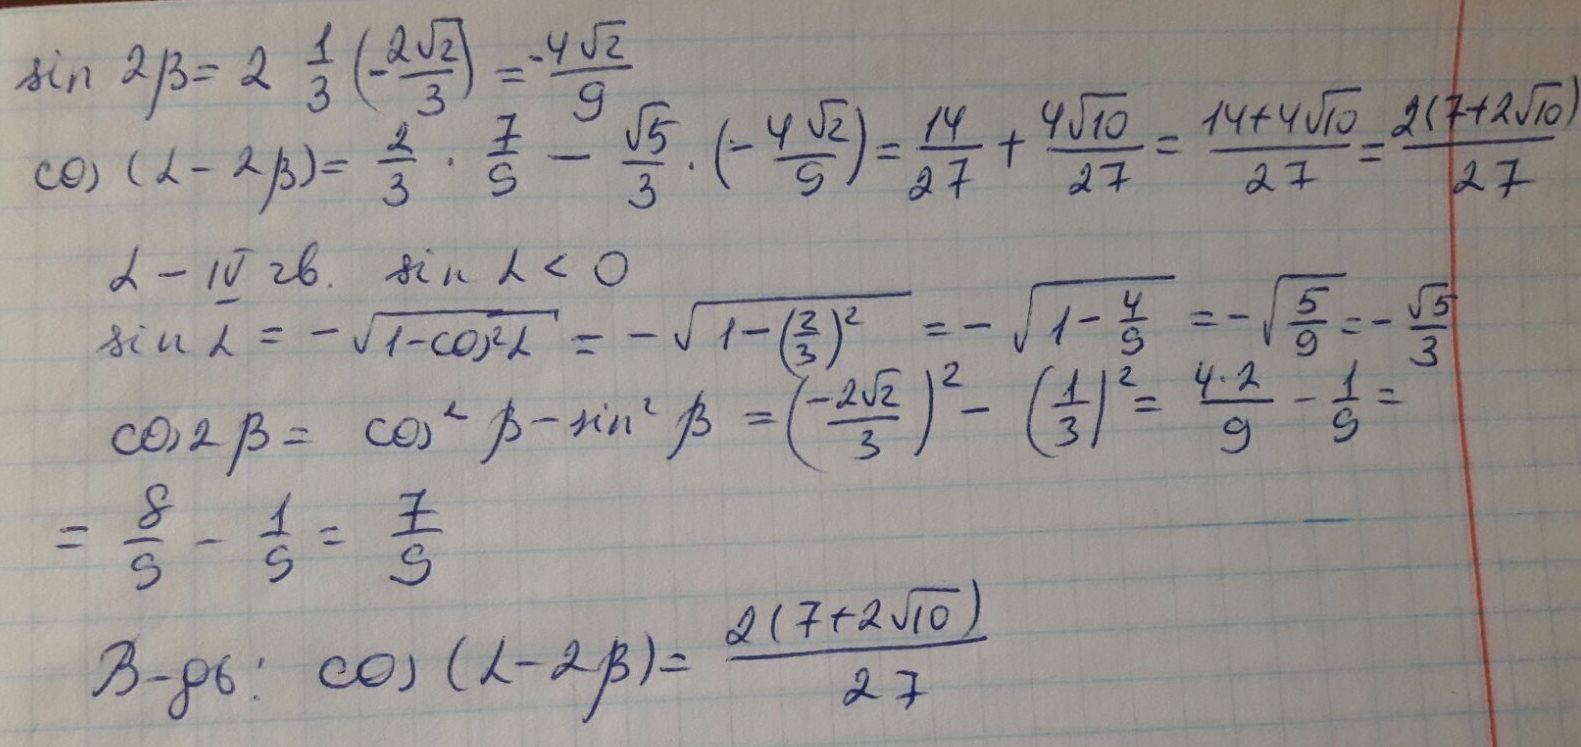 sin 2β = 2 1/3 (-2√2/3) = -4√2/9
cos (α - 2β) = 2/3 · 7/9 - √5/3 · (-4√2/9) = 14/27 + 4√10/27 = 14+4√10/27 = 2(7+2√10)/27
α - IV чв. sin α < 0
sin α = -√(1-cos²α) = -√(1-(2/3)²) = -√(1-4/9) = -√(5/9) = -√5/3
cos 2β = cos² β - sin² β = (-2√2/3)² - (1/3)² = 4·2/9 - 1/9 =
= 8/9 - 1/9 = 7/9
В-дь: cos (α - 2β) = 2(7+2√10)/27